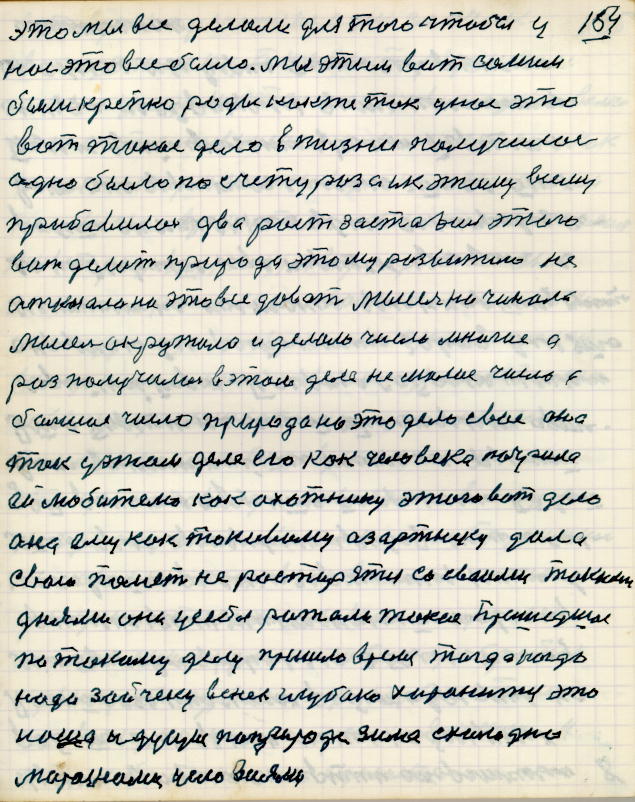 это мы все делали для того чтобы у 184
нас это все было. мы этим вот самим
были крепко рады как же так унас это
вот такое дело в жизни получилос
адно было по счету раз а ик этому всему
прибавилос два рост заставил этого
вот делат природа этому развитию не
на это все дават мысел начинала
мысел окружала и делала число многие а
раз получилос вэтом деле не малое число а
балшое число природа на это дело свое она
так уэтом деле его как человека
любителю как охотнику этого вот дела
она ему как таковому азартнику дала
свою памет не растирятся со своими такими
днями они усебя ражали такое прошедшое
по такому делу пришло время тогда когда
надо зайчеку в снек глубако харанится это
идущия по природе зима схолодно
марознами условиями